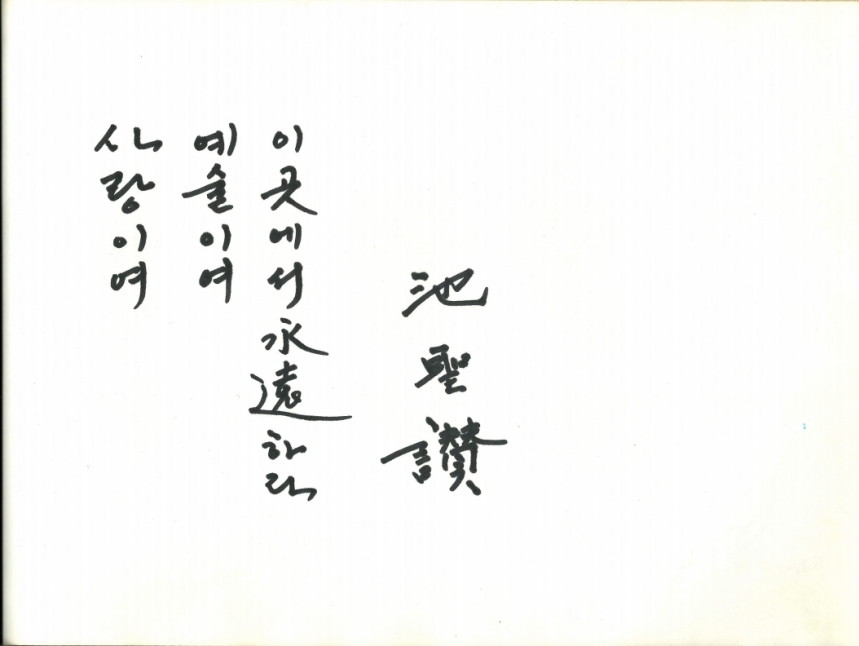 사랑이여
예술이여
이곳에서永遠하라
池聖讚